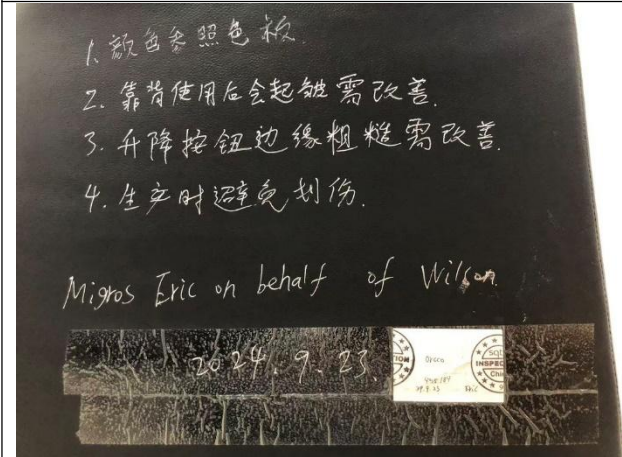 1. 颜色参照色板.
2. 靠背使用后会起皱需改善.
3. 升降按钮边缘粗糙需改善.
4. 生产时避免划伤.
Migros Eric on behalf of Wilson
2024.9.23.
sqt
INSPEC
Chi